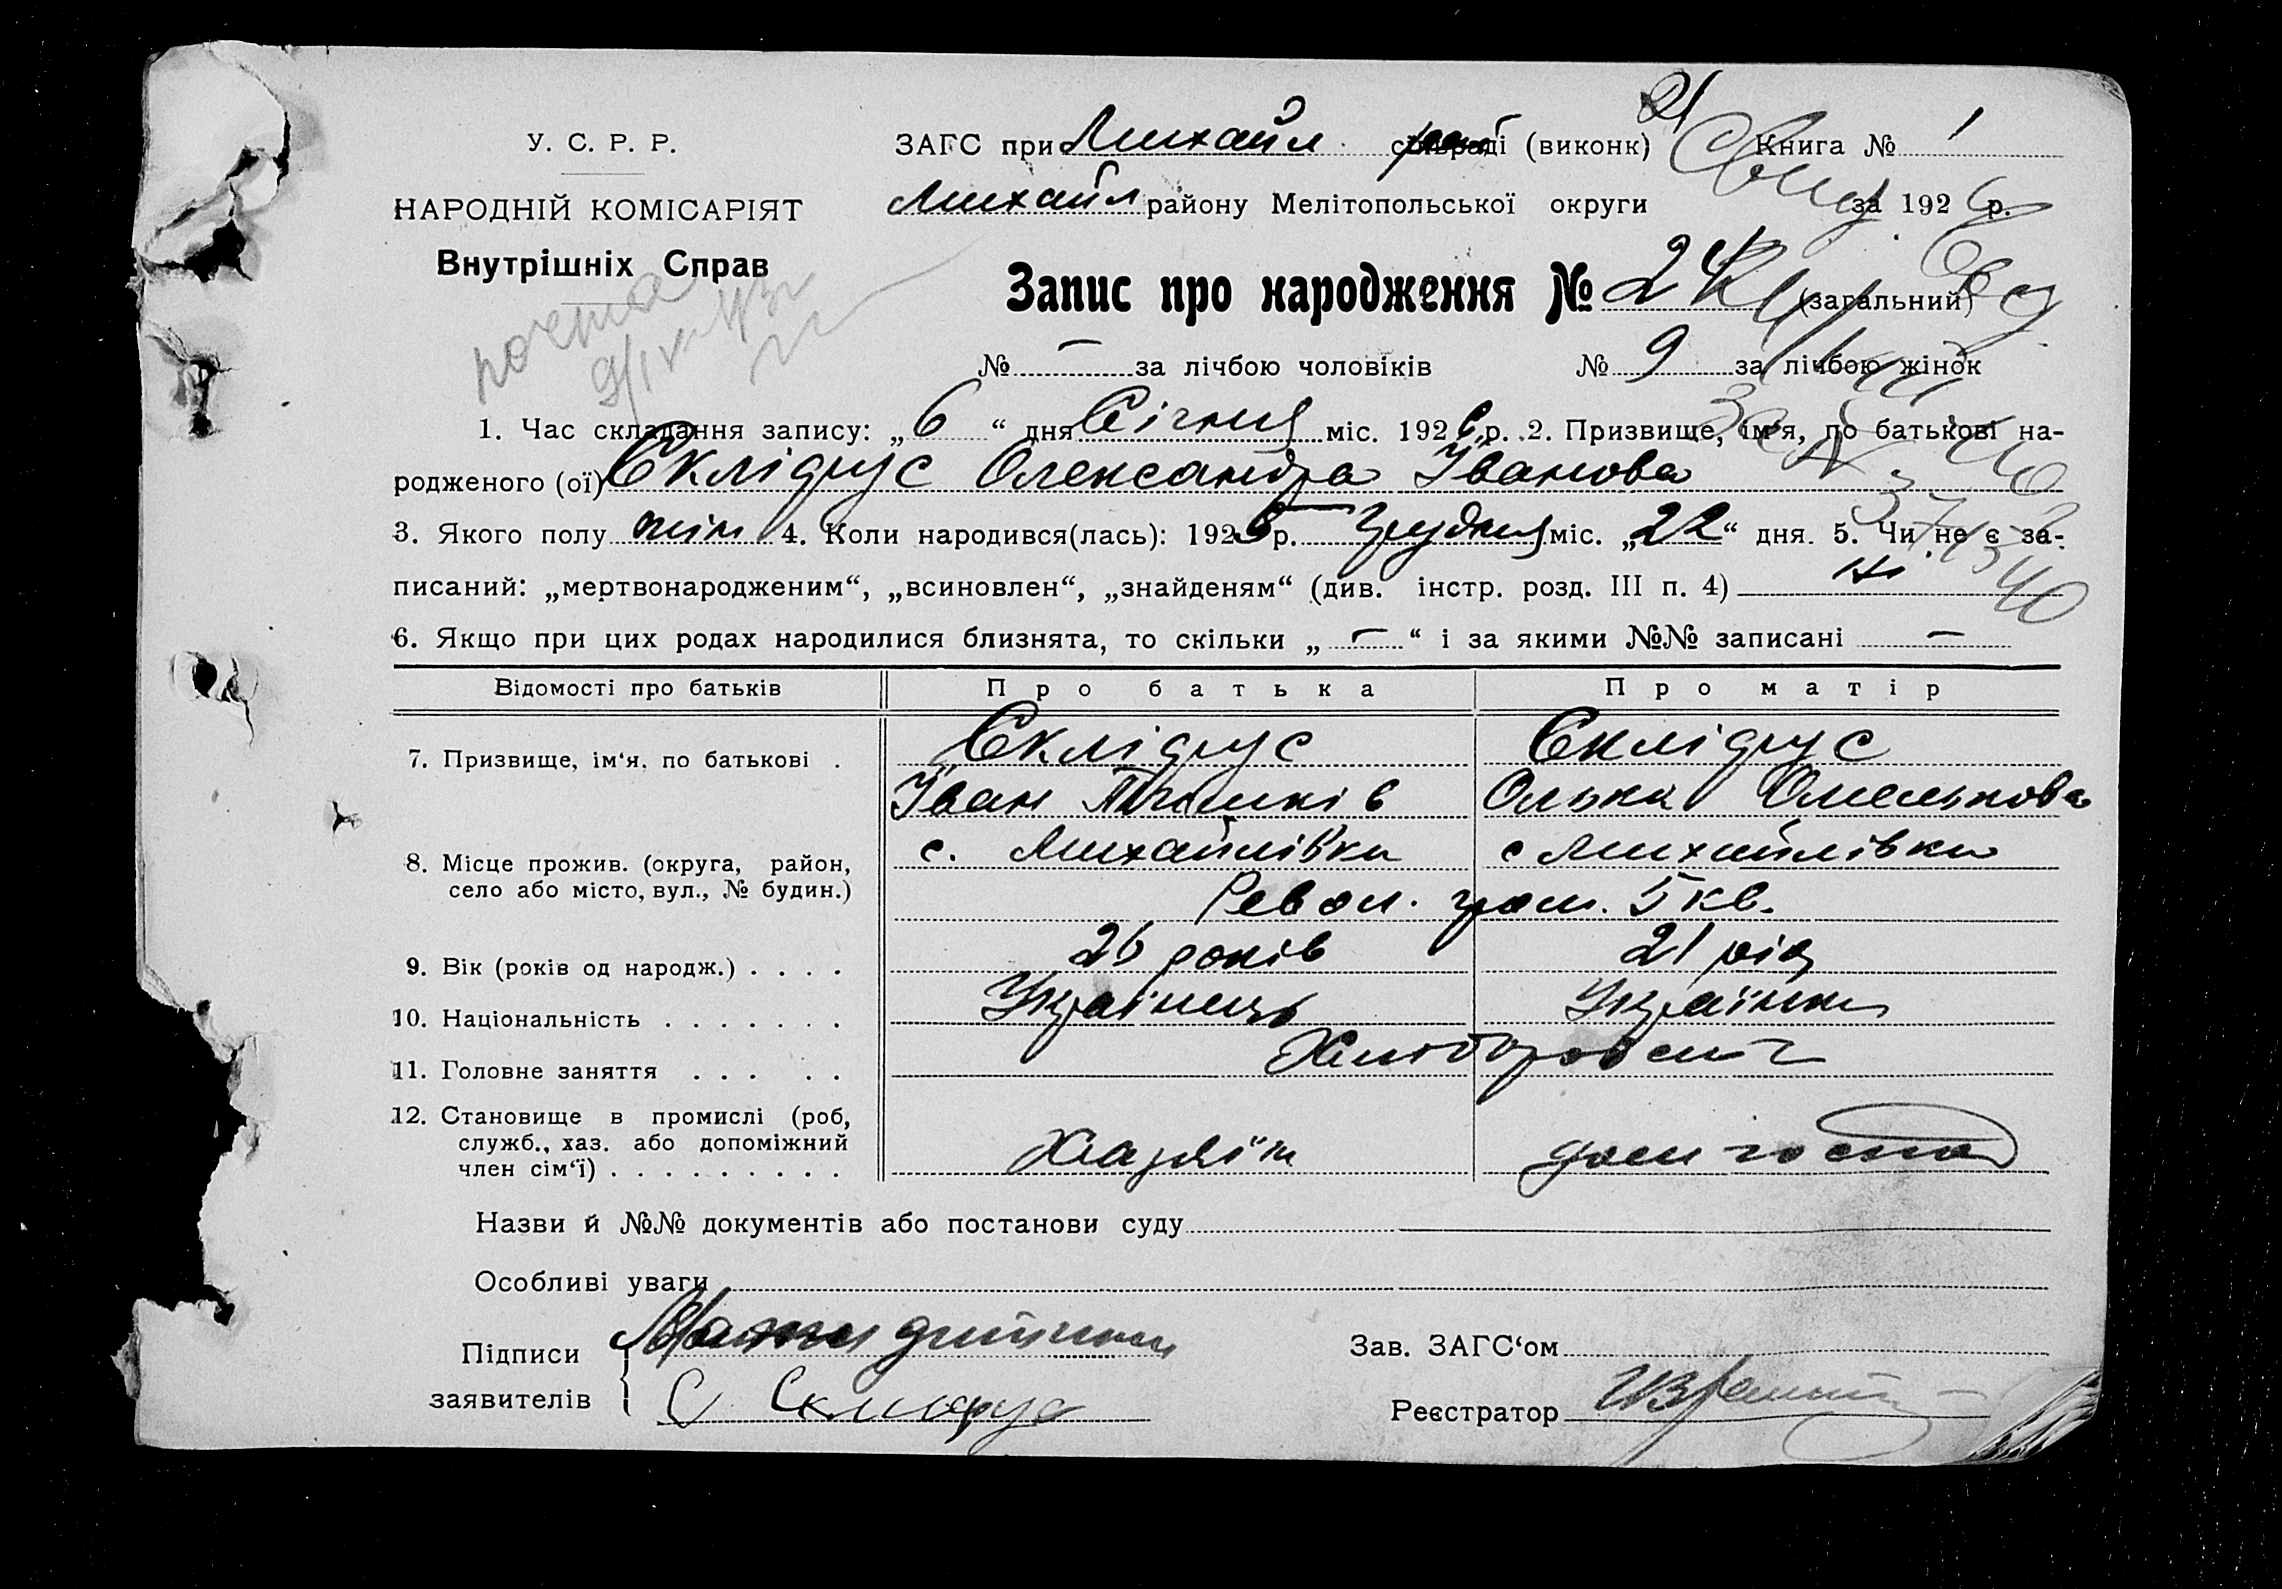 У. С. Р. Р.
НАРОДНІЙ КОМІСАРІЯТ
Внутрішніх Справ
ЗАГС при Михайл. сільраді (виконк) Книга № 1
Михайл району Мелітопольської округи за 1926 р.
Запис про народження № 24 (загальний)
№ — за лічбою чоловіків № 9 за лічбою жінок
1. Час складання запису: „6“ дня Січня міс. 1926 р. 2. Призвище, ім‘я, по батькові на-
родженого (ої) Склідрус Олександра Іванова
3. Якого полу жін 4. Коли народився(лась): 1925 р. Грудня міс. „22“ дня. 5. Чи не є за-
писаний: „мертвонародженим“, „всиновлен“, „знайденям“ (див. інстр. розд. III п. 4) ні
6. Якщо при цих родах народилися близнята, то скільки „—“ і за якими №№ записані —
Відомості про батьків Про батька Про матір
7. Призвище, ім‘я, по батькові . Склідрус Склідрус
Іван Омелькова
8. Місце прожив. (округа, район, с. Михайлівка с Михайлівка
село або місто, вул., № будин.) Револ. гром. 5 кв.
9. Вік (років од народж.) . . . . 26 років 21 рід
10. Національність . . . . . . . Українець Українка
11. Головне заняття . . . . . Хліборобст
12. Становище в промислі (роб,
служб., хаз. або допоміжний
член сім‘ї) . . . . . . . . . Хазяїн
Назви й №№ документів або постанови суду
Особливі уваги
Підписи Мати дитини Зав. ЗАГС‘ом
заявителів Реєстратор